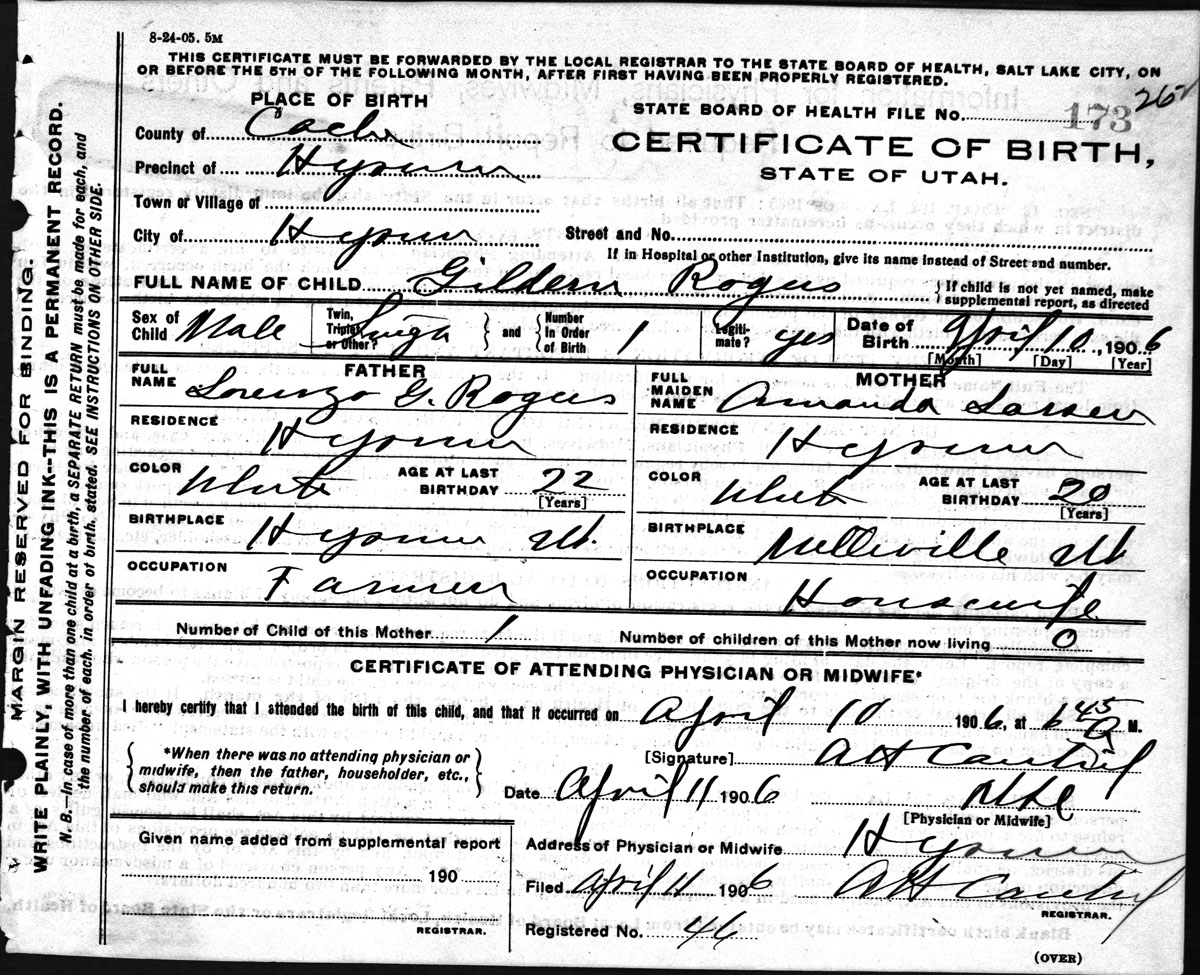 8-24-05. 5M
THIS CERTIFICATE MUST BE FORWARDED BY THE LOCAL REGISTRAR TO THE STATE BOARD OF HEALTH, SALT LAKE CITY, ON
OR BEFORE THE 5TH OF THE FOLLOWING MONTH, AFTER FIRST HAVING BEEN PROPERLY REGISTERED.
MARGIN RESERVED FOR BINDING.
WRITE PLAINLY, WITH UNFADING INK--THIS IS A PERMANENT RECORD.
N. B.—In case of more than one child at a birth, a SEPARATE RETURN must be made for each, and
the number of each, in order of birth, stated. SEE INSTRUCTIONS ON OTHER SIDE.
PLACE OF BIRTH
STATE BOARD OF HEALTH FILE No. 173
County of Cache
CERTIFICATE OF BIRTH,
STATE OF UTAH.
Precinct of Hyrum
Town or Village of
City of Hyrum Street and No.
If in Hospital or other Institution, give its name instead of Street and number.
FULL NAME OF CHILD Rogers If child is not yet named, make
supplemental report, as directed
Sex of Child Male Twin, Triplet, or Other? Single and Number In Order of Birth 1 Legitimate? yes Date of Birth April 10, 1906
[Month] [Day] [Year]
FATHER MOTHER
FULL NAME Lorenzo G. Rogers FULL MAIDEN NAME Amanda Larsen
RESIDENCE Hyrum RESIDENCE Hyrum
COLOR White AGE AT LAST BIRTHDAY 22 [Years] COLOR White AGE AT LAST BIRTHDAY 20 [Years]
BIRTHPLACE Hyrum Ut. BIRTHPLACE Millville Ut
OCCUPATION Farmer OCCUPATION Housewife
Number of Child of this Mother 1 Number of children of this Mother now living 0
CERTIFICATE OF ATTENDING PHYSICIAN OR MIDWIFE*
I hereby certify that I attended the birth of this child, and that it occurred on April 10 1906, at 6 45 A M.
*When there was no attending physician or
midwife, then the father, householder, etc.,
should make this return.
[Signature] A H Cantril
Date April 11 1906
[Physician or Midwife]
Given name added from supplemental report
190
REGISTRAR.
Address of Physician or Midwife Hyrum
Filed April 11 1906 A H Cantril
REGISTRAR.
Registered No. 46
(OVER)